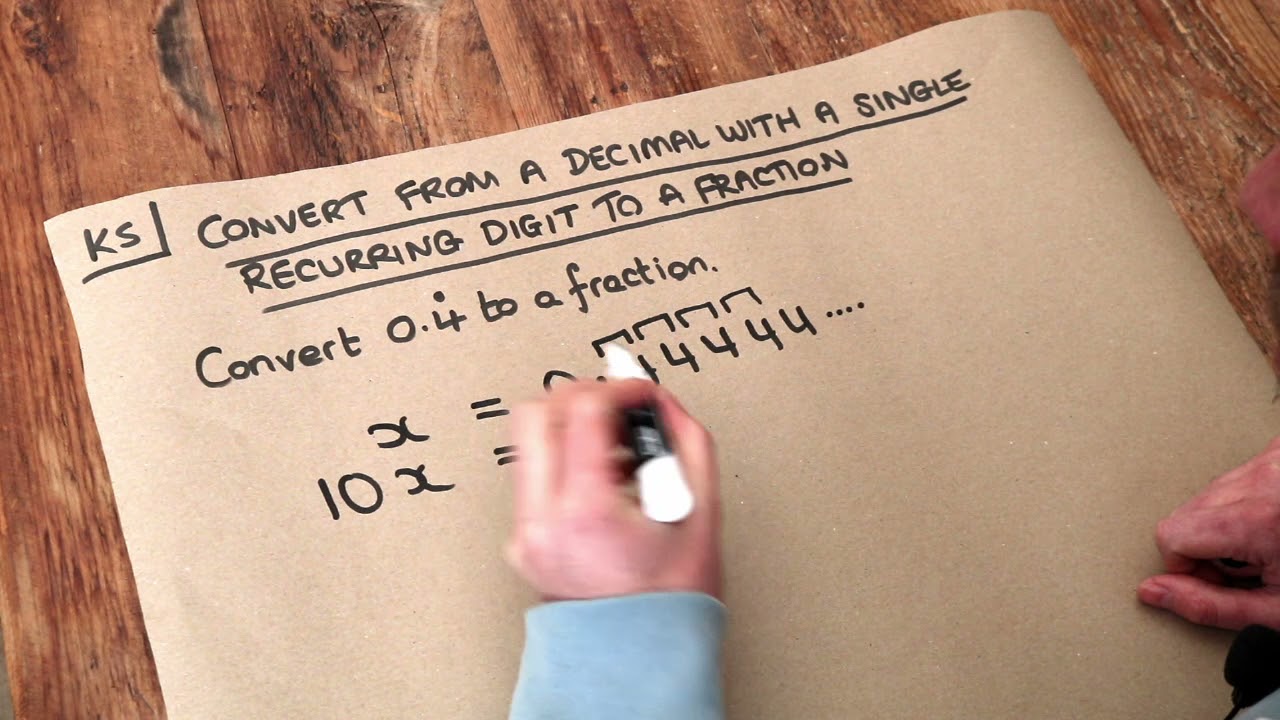 KS CONVERT FROM A DECIMAL WITH A SINGLE
RECURRING DIGIT TO A FRACTION
Convert 0.4̇ to a fraction.
x = 0.44444....
10x =